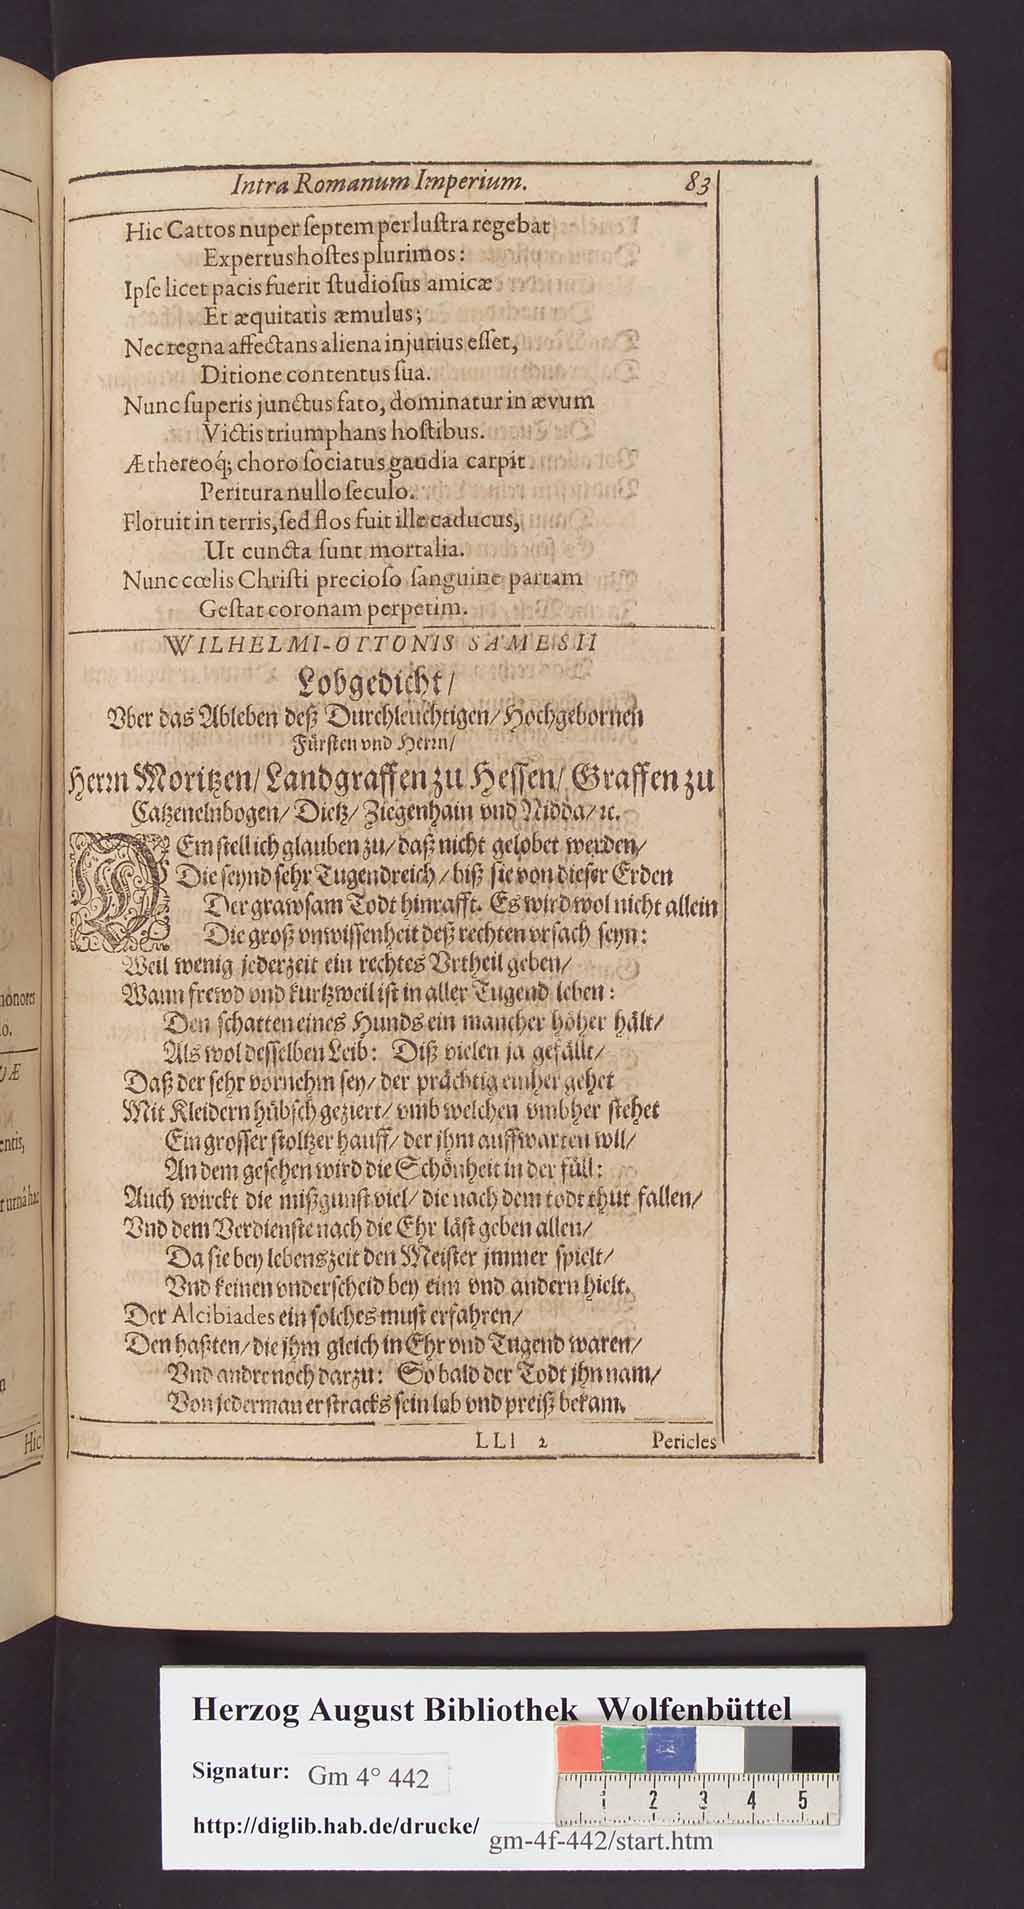 Intra Romanum Imperium. 83
Hic Cattos nuper ſeptem per luſtra regebat
Expertus hoſtes plurimos:
Ipſe licet pacis fuerit ſtudioſus amicæ
Et æquitatis æmulus;
Nec regna affectans aliena injurius eſſet,
Ditione contentus ſua.
Nunc ſuperis junctus fato, dominatur in ævum
Victis triumphans hoſtibus.
Æthereoq́; choro ſociatus gaudia carpit
Peritura nullo ſeculo.
Floruit in terris, ſed flos fuit ille caducus,
Ut cuncta ſunt mortalia.
Nunc cœlis Chriſti precioſo ſanguine partam
Geſtat coronam perpetim.
WILHELMI-OTTONIS SAMESII
Lobgedicht/
Vber das Ableben deß Durchleuchtigen/ Hochgebornen
Fürſten vnd Herrn/
Herrn Moritzen/ Landgraffen zu Heſſen/ Graffen zu
Catzenelnbogen/ Dietz/ Ziegenhain vnd Nidda/ ꝛc.
Ein ſtell ich glauben zu/ daß nicht gelobet werden/
Die ſeynd ſehr Tugendreich/ biß ſie von dieſer Erden
Der grawſam Todt hinrafft. Es wird wol nicht allein
Die groß vnwiſſenheit deß rechten vrſach ſeyn:
Weil wenig jederzeit ein rechtes Vrtheil geben/
Wann frewd vnd kurtzweil iſt in aller Tugend leben:
Den ſchatten eines Hunds ein mancher höher hält/
Als wol deſſelben Leib: Diß vielen ja gefällt/
Daß der ſehr vornehm ſey/ der prächtig einher gehet
Mit Kleidern hübſch geziert/ vmb welchen vmbher ſtehet
Ein groſſer ſtoltzer hauff/ der jhm auffwarten wil/
An dem geſehen wird die Schönheit in der füll:
Auch wirckt die mißgunſt viel/ die nach dem todt thut fallen/
Vnd dem Verdienſte nach die Ehr läſt geben allen/
Da ſie bey lebenszeit den Meiſter jmmer ſpielt/
Vnd keinen vnderſcheid bey eim vnd andern hielt.
Der Alcibiades ein ſolches muſt erfahren/
Den haßten/ die jhm gleich in Ehr vnd Tugend waren/
Vnd andre noch darzu: So bald der Todt jhn nam/
Von jederman er ſtracks ſein lob vnd preiß bekam.
LLl 2 Pericles
Hic
Herzog August Bibliothek Wolfenbüttel
Signatur: Gm 4° 442
http://diglib.hab.de/drucke/ gm-4f-442/start.htm
1 2 3 4 5